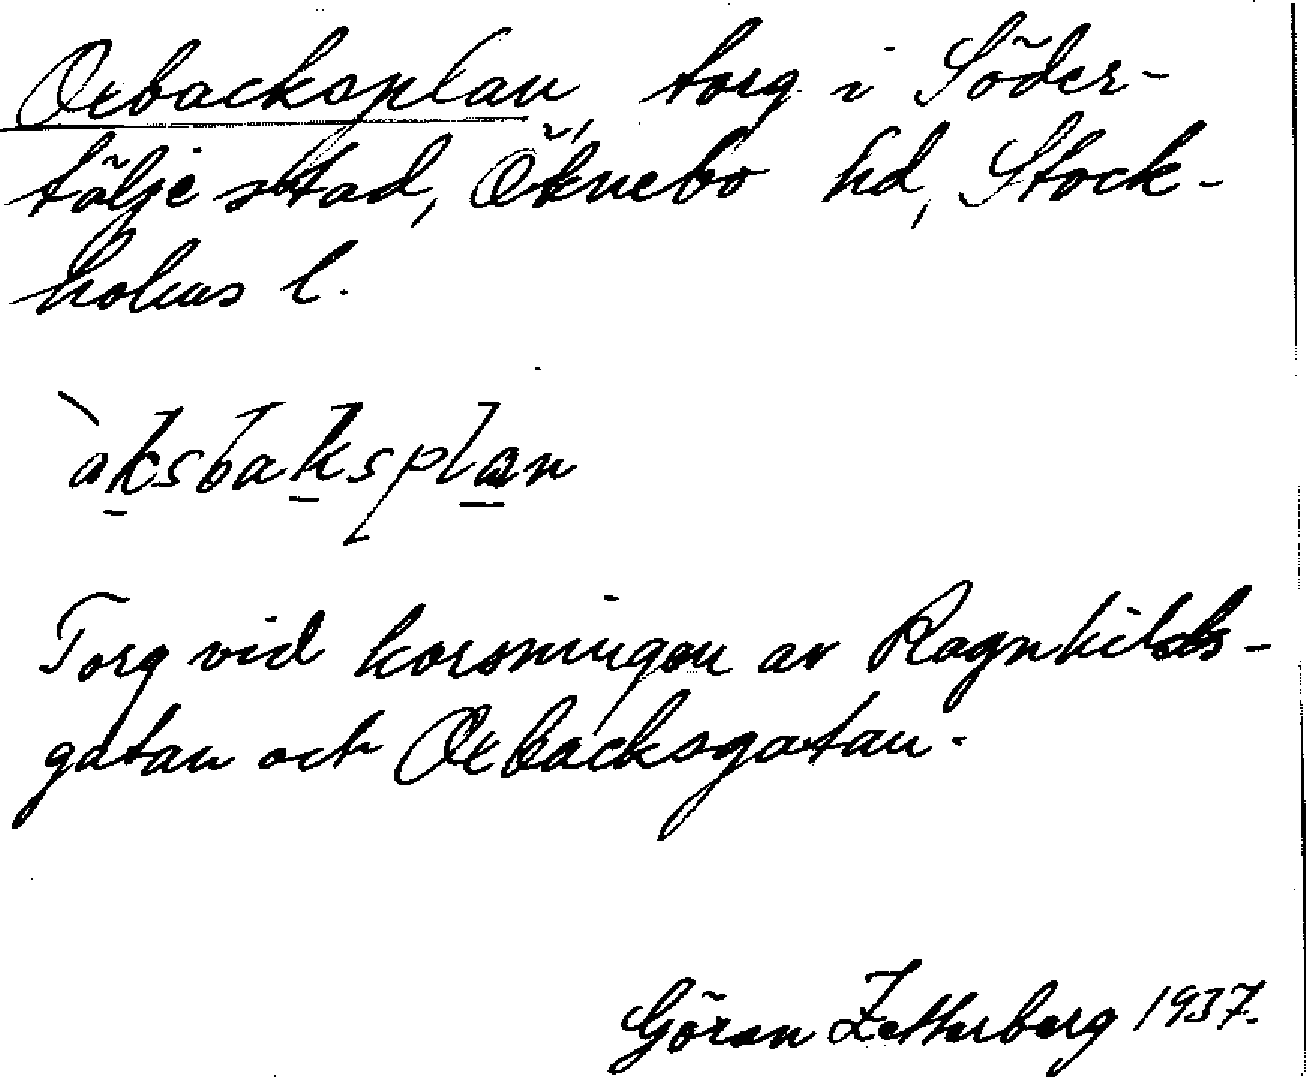 Oxbacksplan, torg i Söder-
tälje stad, Öknebo hd, Stock-
holms l.
àksbaksplan
Torg vid korsningen av Ragnhilds-
gatan och Oxbacksgatan.
Göran Zetterberg 1937.